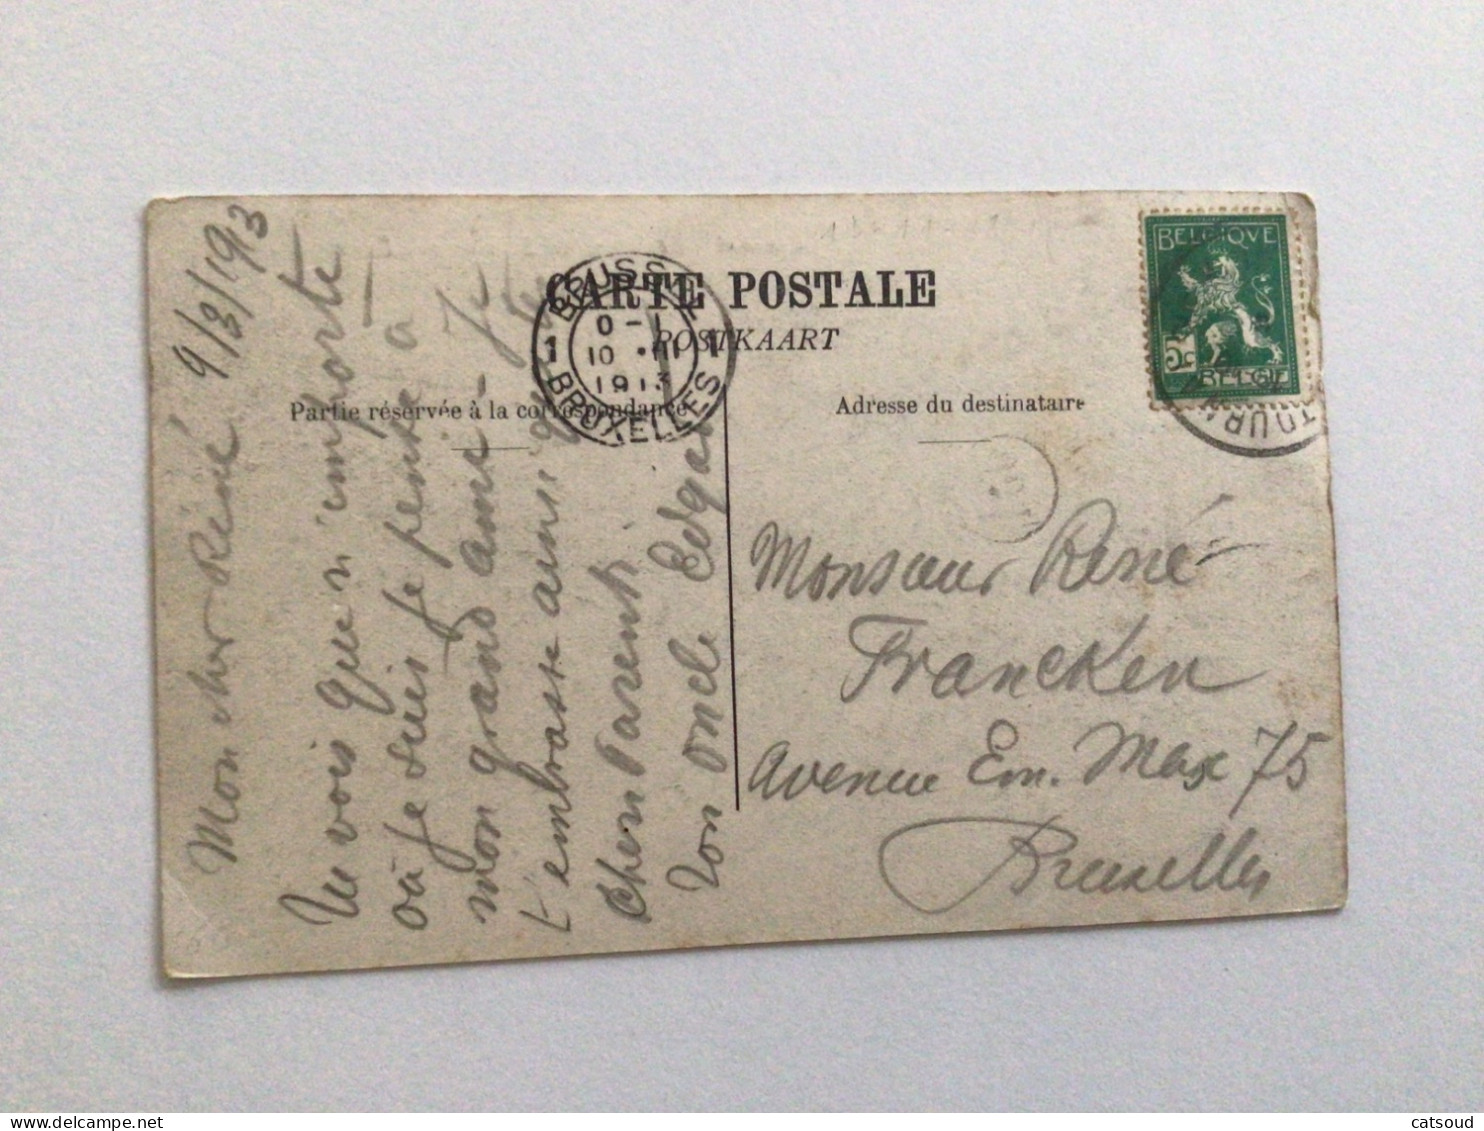 CARTE POSTALE
POSTKAART
Partie réservée à la correspondance
Adresse du destinataire
BRUSSEL
1 0-1 1
10 III
1913
BRUXELLES
BELGIQVE
5c
BELGIE
TOURN
9/3/1913
Mon cher René
Tu vois que n'importe
où je suis je pense à
mon grand ami
t'embrasse ainsi que
chers Parents
Ton oncle Edgar
Monsieur René
Francken
Avenue Em. Max 75
Bruxelles
catsoud